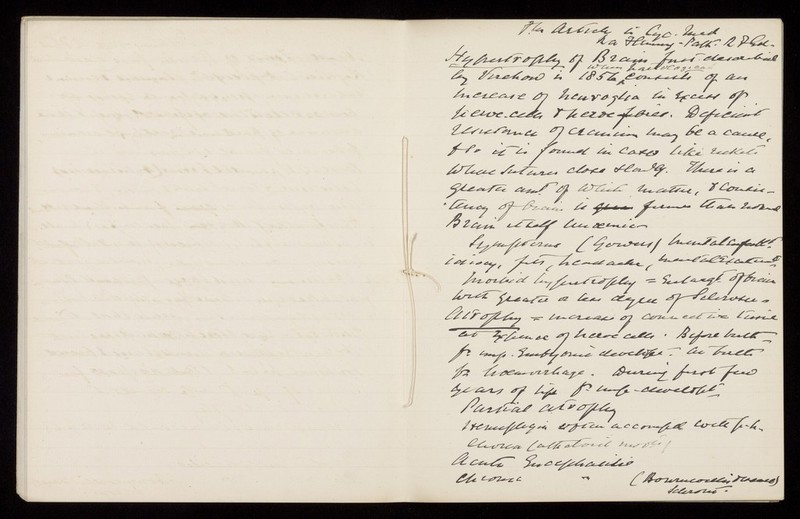 Article in Cyc. Med
Path.
Hypertrophy of Brain first described
by Virchow in 1856, consists of an
increase of neuroglia in excess of
nerve-cells & nerve fibres. Deficient
resistance of cranium may be a cause,
& so it is found in cases like rickets
whose sutures close slowly. There is a
greater amt of white matter, & consis-
tency of brain is firmer than normal
Brain itself anaemic
Symptoms (Gowers) mental
idiocy, fits, headache, mental
Morbid hypertrophy = Enlargt of brain
with greater or less degree of Sclerosis
Atrophy = increase of connective tissue
at expense of nerve cells. Before birth
fr imp. Embryonic developt. At birth
fr haemorrhage. During first few
years of life fr imp-developt
Partial atrophy
Hemiplegia often accompd with
chorea (athetoid movts)
Acute Encephalitis
Chronic " (Bourneville's
Sclerosis.